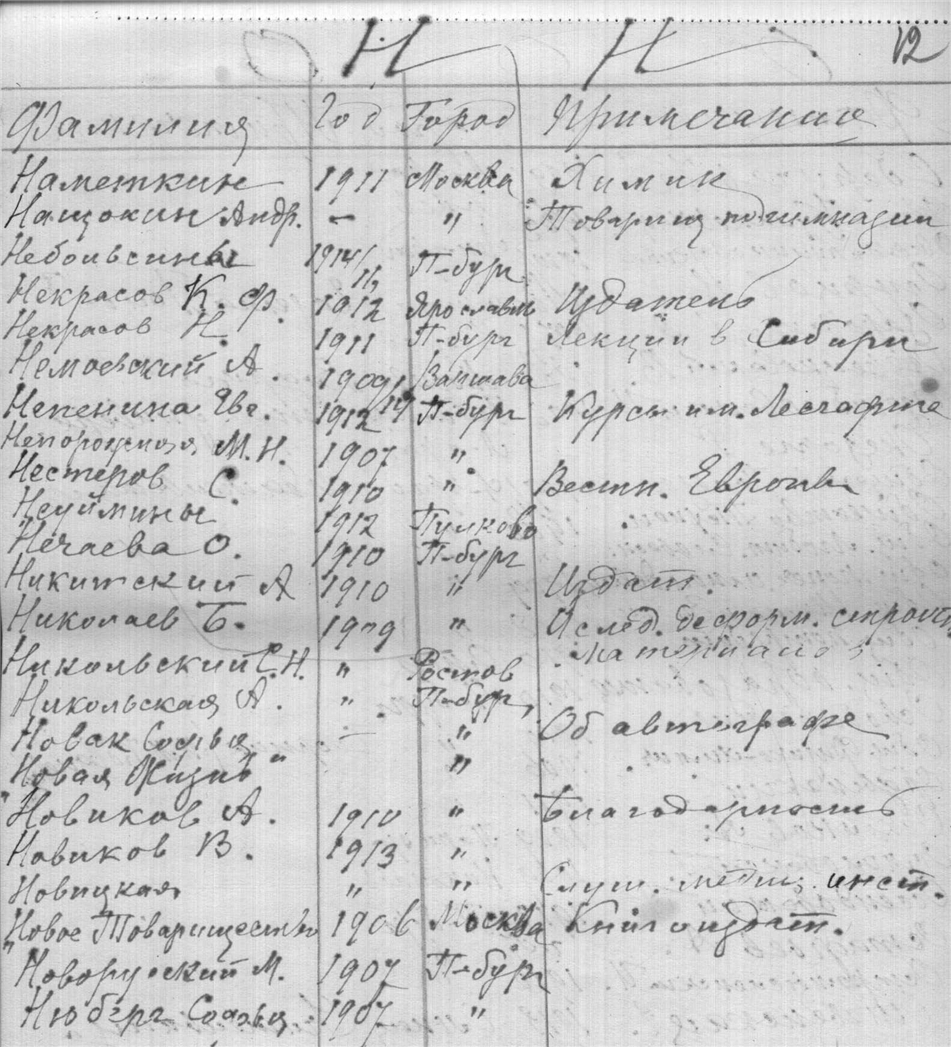 Н Н 12
Фамилия Год Город Примечание
Наметкин 1911 Москва Химик
Нащокин Андр. — " Товарищ по гимназии
Небольсины 1914/ П-бург
Некрасов К. Ф. 1912 Ярославль Издатель
Некрасов Н. 1911 П-бург Лекции в Сибири
Немоевский А. 1909 Варшава
Непенина Евг. 1912 П-бург Курсы им. Лесгафта
М. Н. 1907 "
Нестеров С. 1910 " Вестн. Европы
Неуймины 1912 Пулково
Нечаева О. 1910 П-бург
Никитский А 1910 " Издат.
Николаев Б. 1909 " Ислед. деформ. строит.
материалов
Никольский Н. " Ростов
Никольская А. " П-бург
Новак Софья — " Об автографе
"Новая Жизнь" "
Новиков А. 1910 " Благодарность
Новиков В. 1913 "
Новицкая " " Слуш. медиц. инст.
"Новое Товарищество 1906 Москва Книгоиздат.
Новорусский М. 1907 П-бург
Нюберг Софья 1907 "